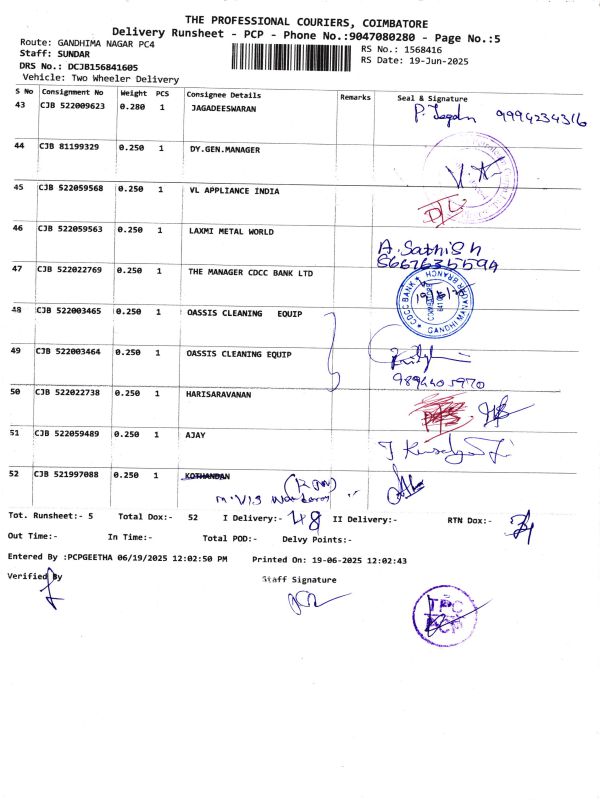 THE PROFESSIONAL COURIERS, COIMBATORE
Delivery Runsheet - PCP - Phone No.:9047080280 - Page No.:5
Route: GANDHIMA NAGAR PC4
RS No.: 1568416
Staff: SUNDAR
RS Date: 19-Jun-2025
DRS No.: DCJB156841605
Vehicle: Two Wheeler Delivery
S No Consignment No Weight PCS Consignee Details Remarks Seal & Signature
43 CJB 522009623 0.280 1 JAGADEESWARAN P. Jagdn 9994234316
44 CJB 81199329 0.250 1 DY.GEN.MANAGER
45 CJB 522059568 0.250 1 VL APPLIANCE INDIA
46 CJB 522059563 0.250 1 LAXMI METAL WORLD A. Sathish
47 CJB 522022769 0.250 1 THE MANAGER CDCC BANK LTD
CDCC BANK GANDHI MANAGAR BRANCH
48 CJB 522003465 0.250 1 OASSIS CLEANING EQUIP
49 CJB 522003464 0.250 1 OASSIS CLEANING EQUIP
9894405970
50 CJB 522022738 0.250 1 HARISARAVANAN
51 CJB 522059489 0.250 1 AJAY
52 CJB 521997088 0.250 1 KOTHANDAN
Tot. Runsheet:- 5 Total Dox:- 52 I Delivery:- 48 II Delivery:- RTN Dox:-
Out Time:- In Time:- Total POD:- Delvy Points:-
Entered By :PCPGEETHA 06/19/2025 12:02:50 PM Printed On: 19-06-2025 12:02:43
Verified By Staff Signature
TPC